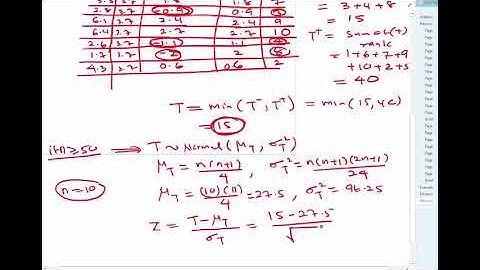 2.8 3.7 -0.9 0.9 3
6.1 3.7 2.4 2.4 9
6.4 3.7 2.7 2.7 10
2.6 3.7 -1.1 1.1 4
1.7 3.7 -2 2 8
4.3 3.7 0.6 0.6 2
= 3+4+8
= 15
T⁺ = sum of (+) rank
= 1+6+7+9
+10+2+5
= 40
T = min(T⁻, T⁺) = min(15, 40)
= 15
if n ≥ 50 ⟹ T ~ Normal(μ_T, σ_T²)
μ_T = n(n+1)/4 , σ_T² = n(n+1)(2n+1)/24
n = 10
μ_T = (10)(11)/4 = 27.5 , σ_T² = 96.25
Z = (T - μ_T)/σ_T = (15 - 27.5)/√